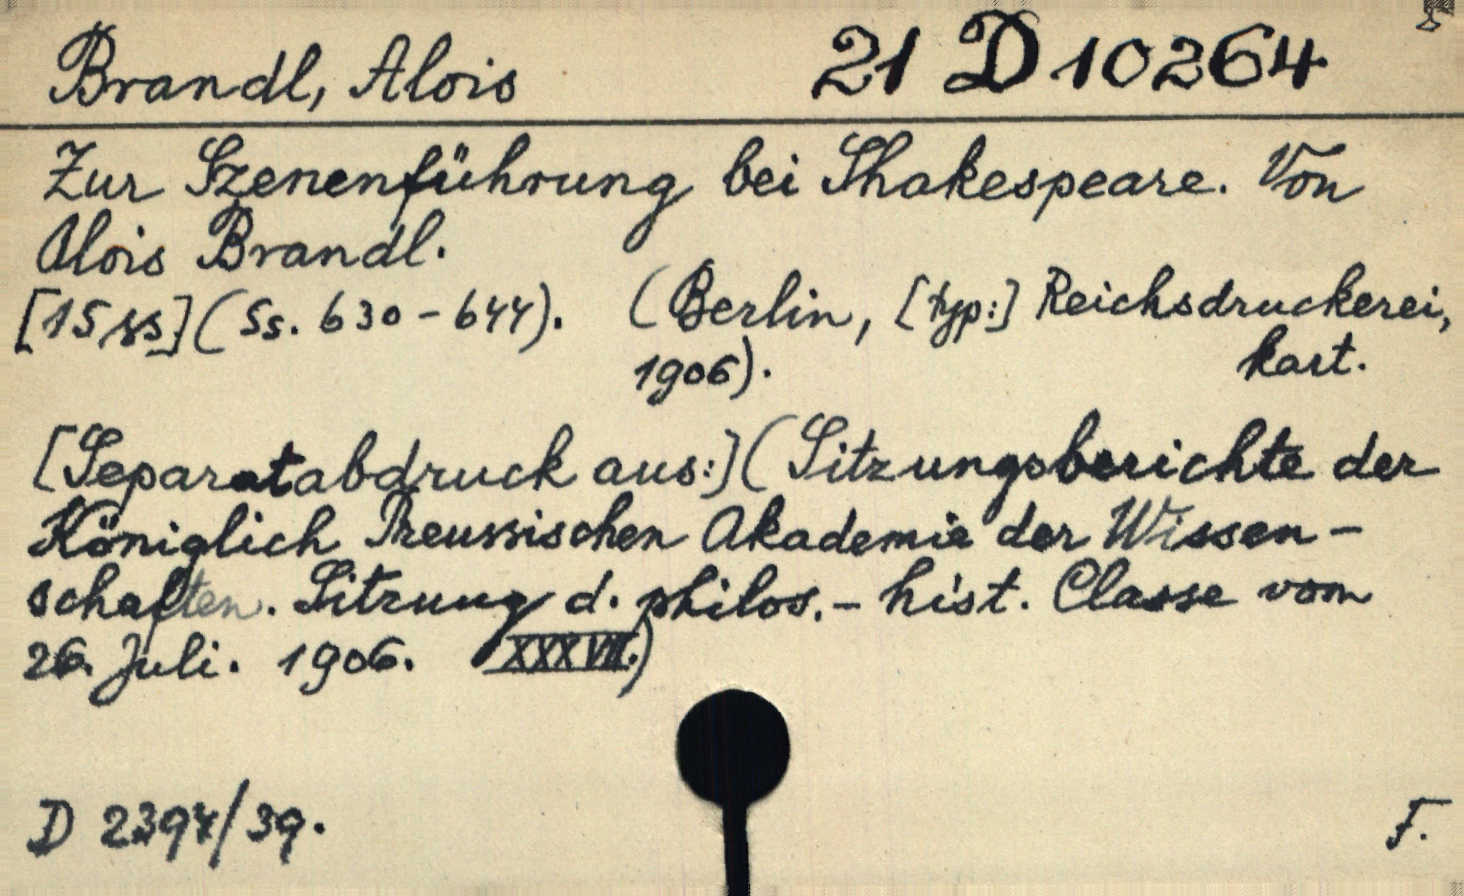 Brandl, Alois 21 D 10264
Zur Szenenführung bei Shakespeare. Von
Alois Brandl.
[15 ss.] (Ss. 630-644). (Berlin, [typ:] Reichsdruckerei,
1906). kart.
[Separatabdruck aus:] (Sitzungsberichte der
Königlich Preussischen Akademie der Wissen-
schaften. Sitzung d. philos.- hist. Classe vom
26. Juli. 1906. XXXVII.)
D 2394/39. F.